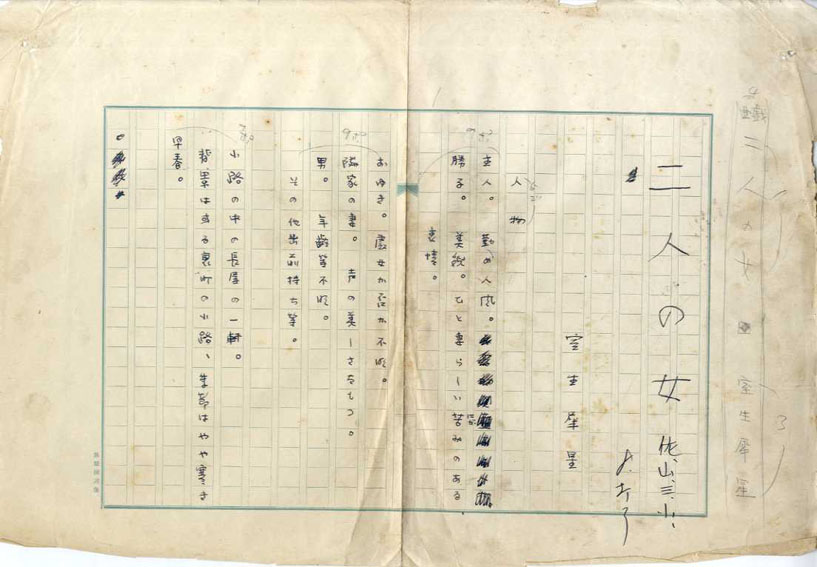 二人の女
室生犀星
二人の女
室生犀星
人物
主人。勤め人風。
勝子。美貌。ひと妻らしい苦みのある、
表情。
おゆき。處女か否か不明。
隣家の妻。声の美しさをもつ。
男。年齢等不明。
その他出前持ち等。
小路の中の長屋の一軒。
背景は或る裏町の小路、季節はやや寒き
早春。